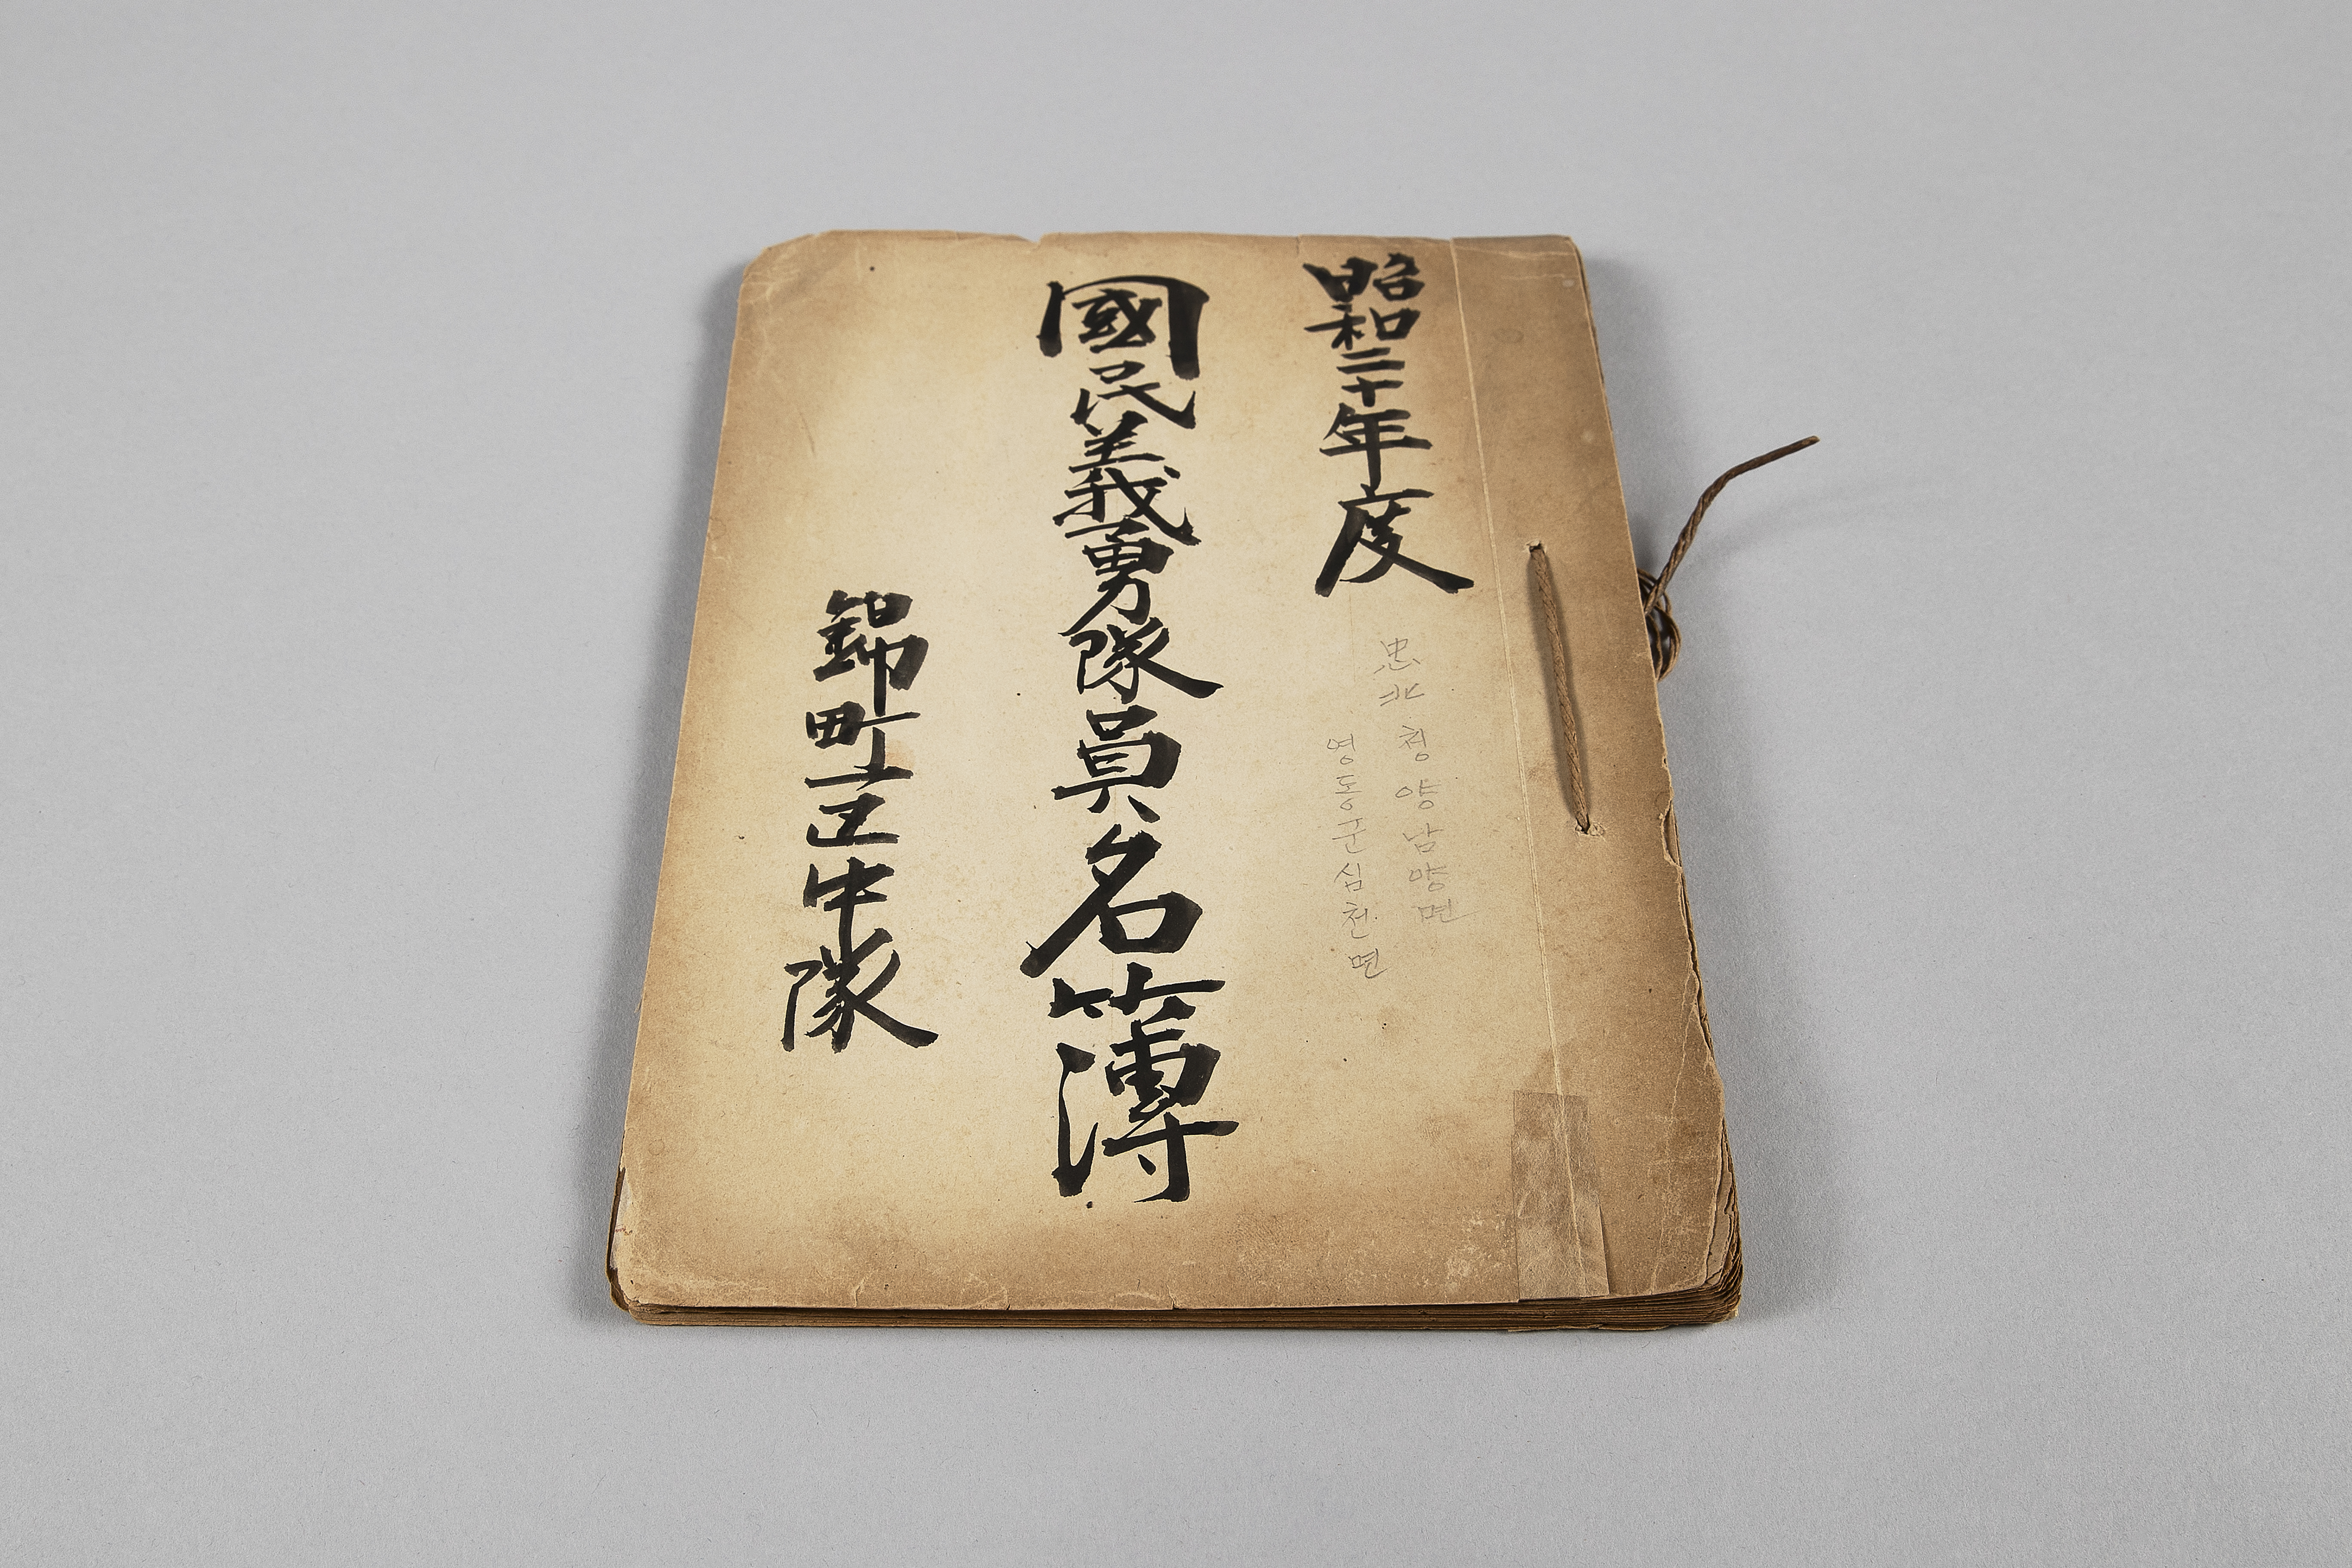 昭和二十年度
忠北 청양남양면
영동군심천면
國民義勇隊員名簿
錦町中隊